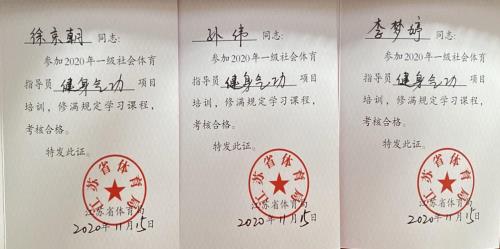 徐京朝 同志:
参加2020年一级社会体育
指导员 健身气功 项目
培训，修满规定学习课程，
考核合格。
特发此证。
江苏省体育局
江苏省体育局
2020年11月15日
孙伟 同志:
参加2020年一级社会体育
指导员 健身气功 项目
培训，修满规定学习课程，
考核合格。
特发此证。
江苏省体育局
江苏省体育局
2020年11月15日
李梦婷 同志:
参加2020年一级社会体育
指导员 健身气功 项目
培训，修满规定学习课程，
考核合格。
特发此证。
江苏省体育局
江苏省体育局
2020年11月15日